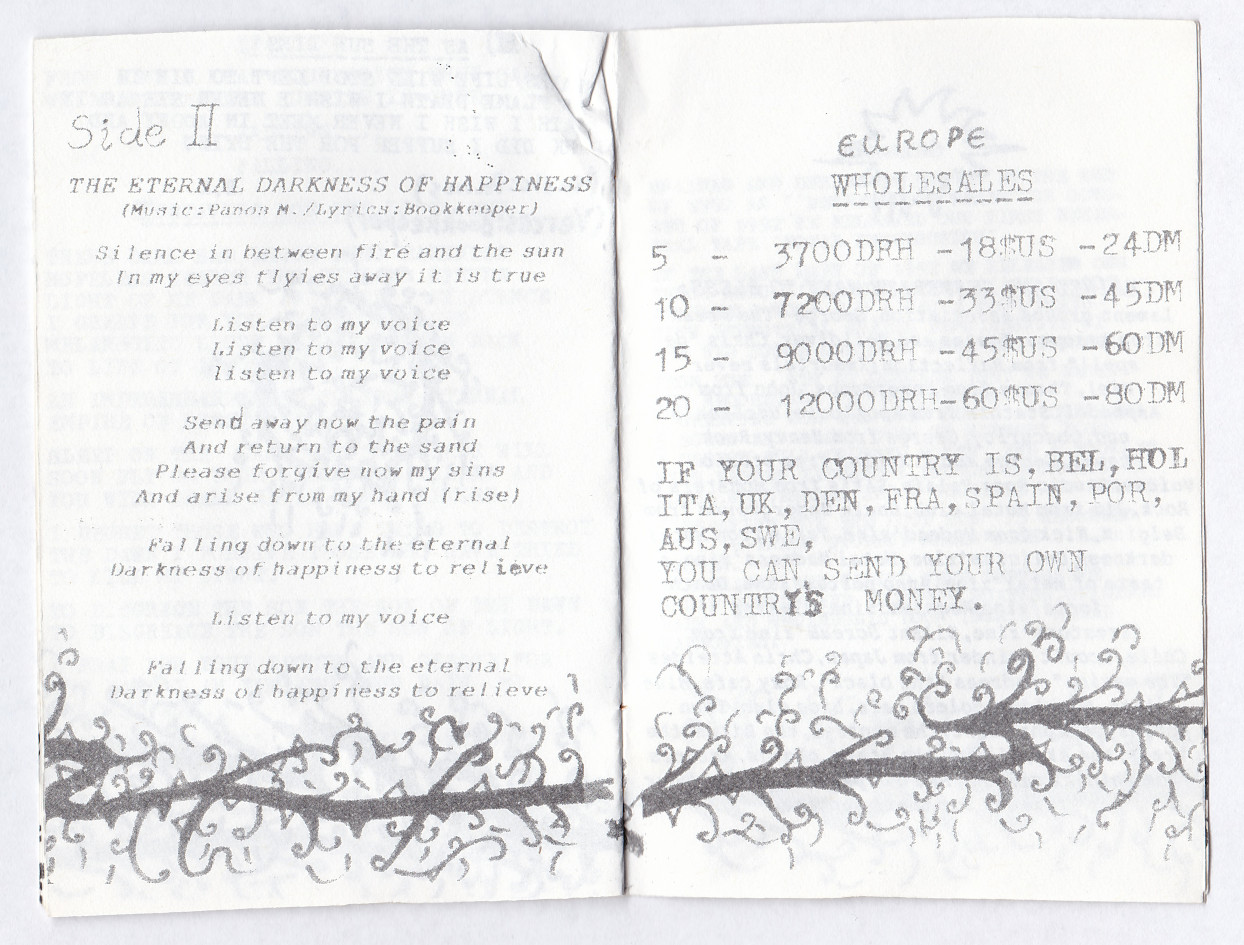 Side II
THE ETERNAL DARKNESS OF HAPPINESS
(Music:Panos M./Lyrics:Bookkeeper)
Silence in between fire and the sun
In my eyes flyies away it is true
Listen to my voice
Listen to my voice
listen to my voice
Send away now the pain
And return to the sand
Please forgive now my sins
And arise from my hand (rise)
Falling down to the eternal
Darkness of happiness to relieve
Listen to my voice
Falling down to the eternal
Darkness of happiness to relieve
EUROPE
WHOLESALES
5 - 3700DRH -18$US -24DM
10 - 7200DRH -33$US -45DM
15 - 9000DRH -45$US -60DM
20 - 12000DRH-60$US -80DM
IF YOUR COUNTRY IS,BEL,HOL
ITA,UK,DEN,FRA,SPAIN,POR,
AUS,SWE,
YOU CAN SEND YOUR OWN
COUNTRY'S MONEY.